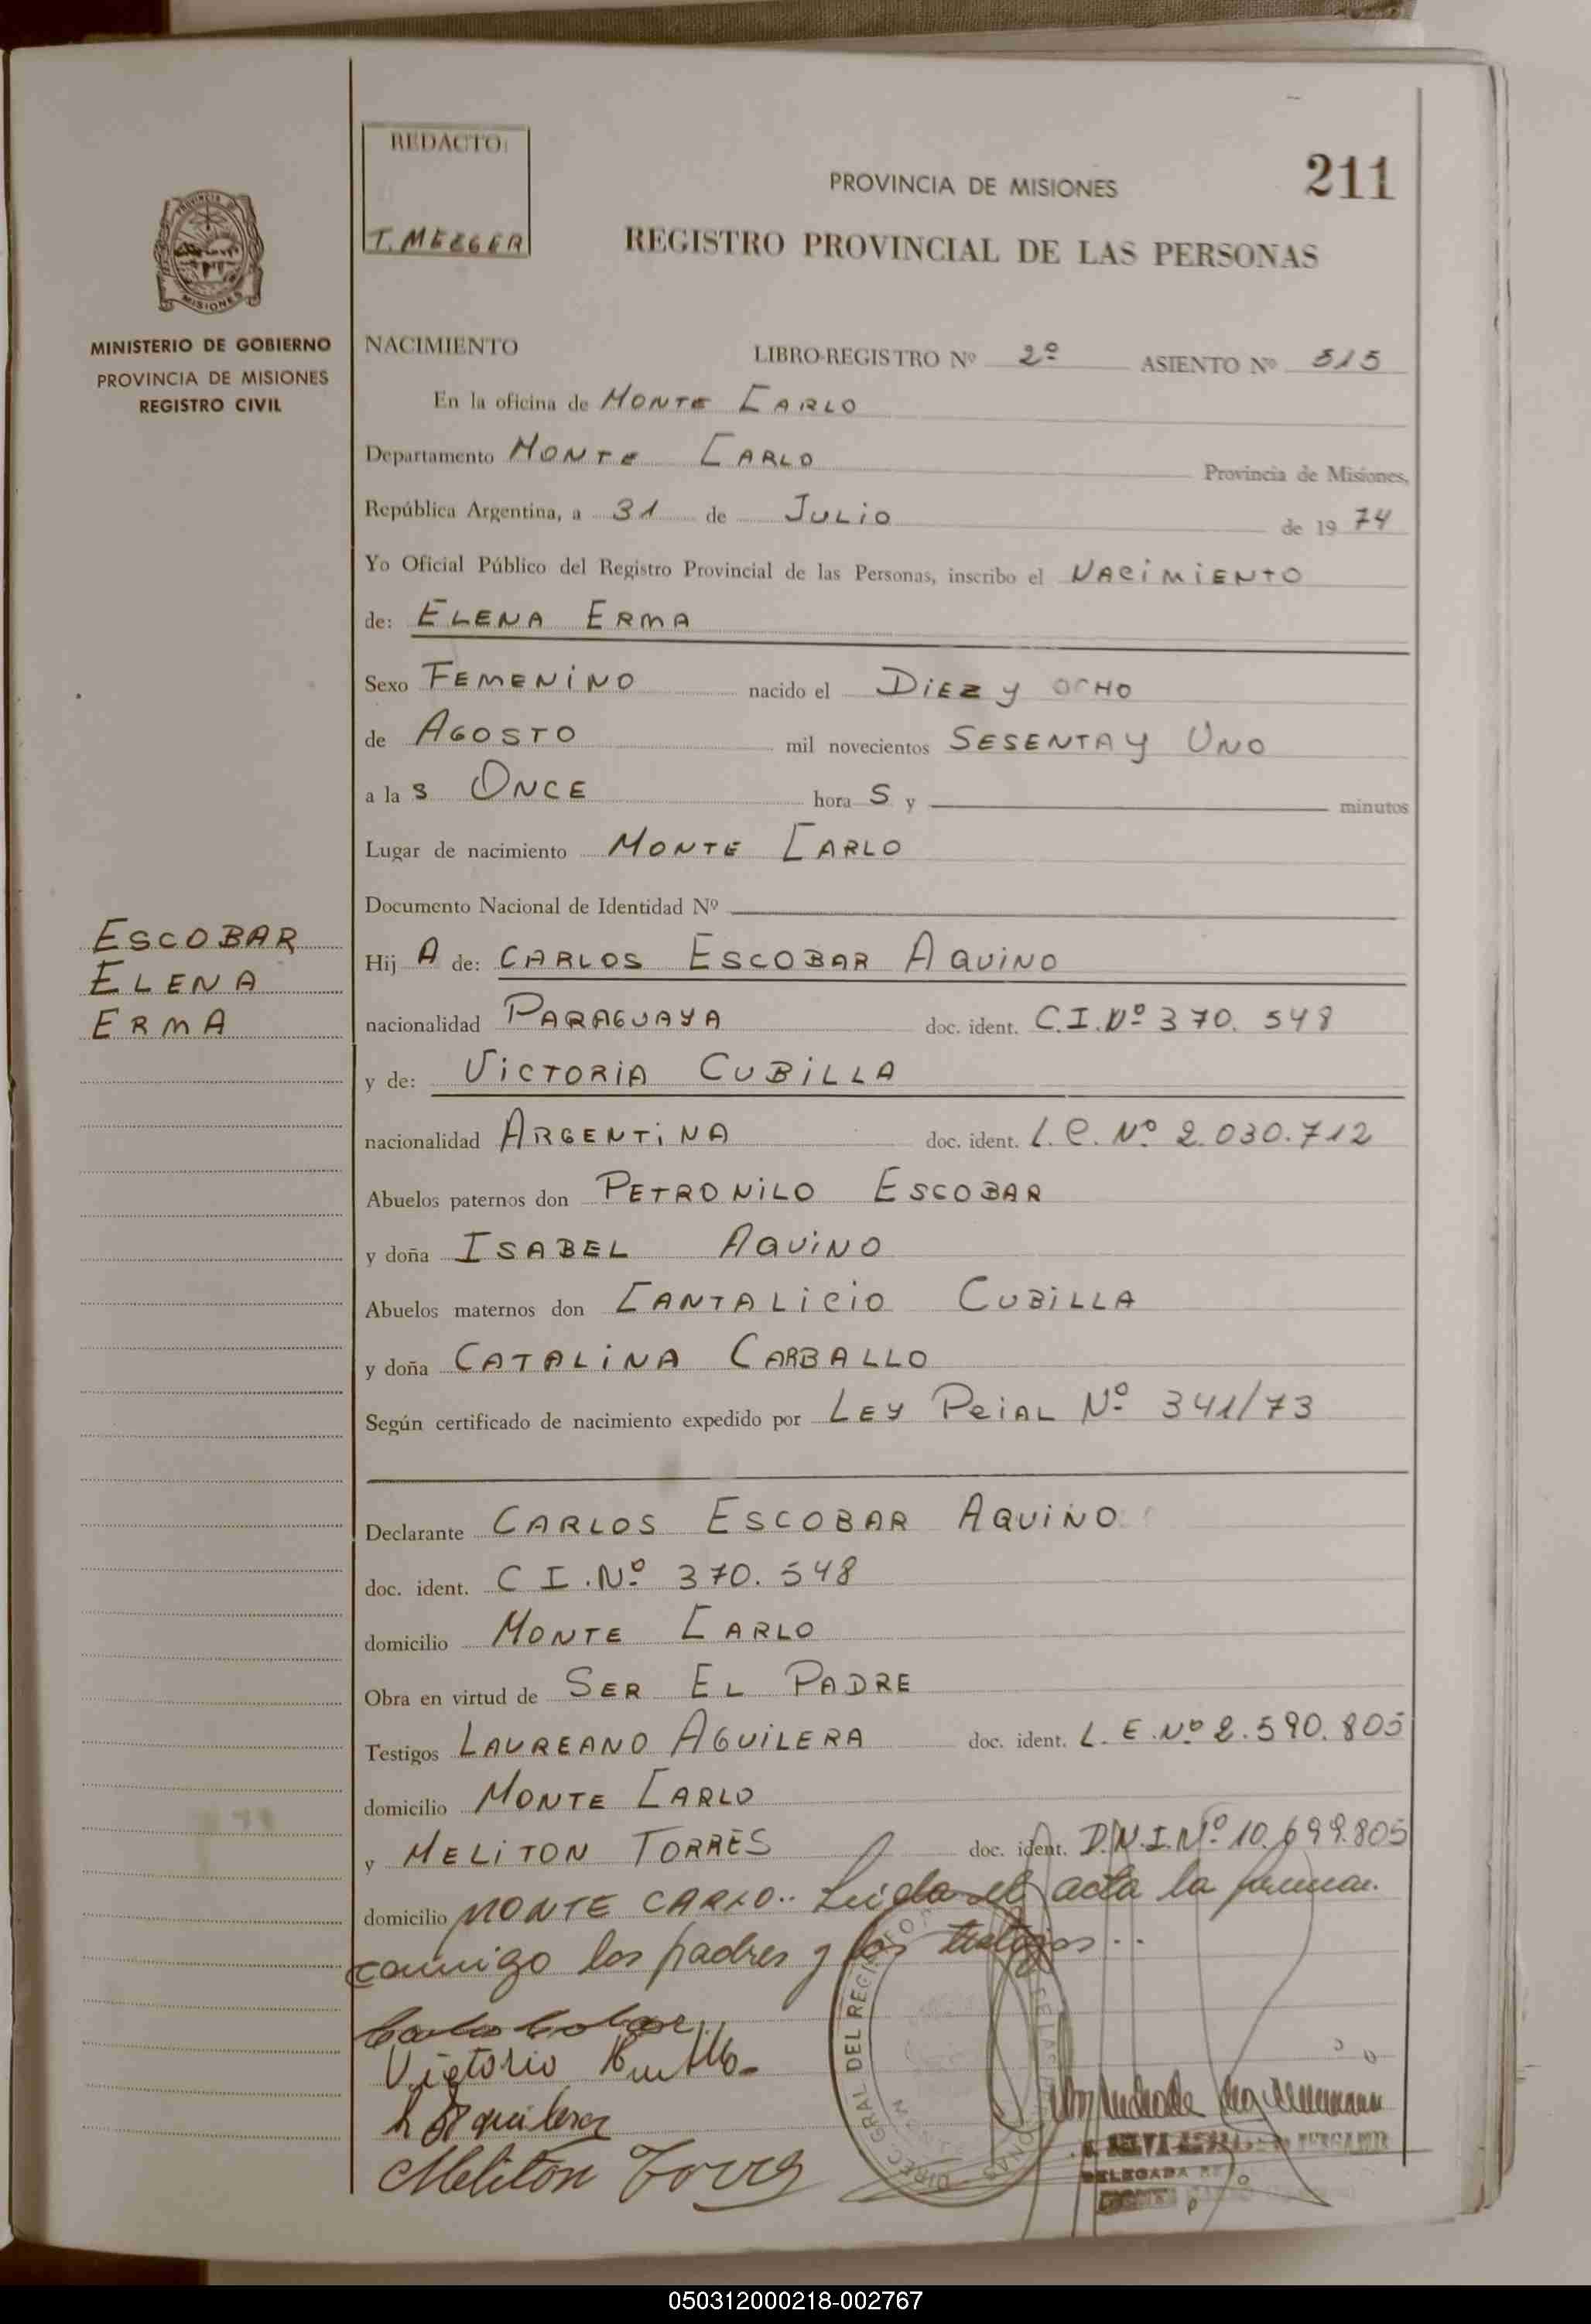 REDACTO:
T. MEZGER
PROVINCIA DE MISIONES
211
REGISTRO PROVINCIAL DE LAS PERSONAS
PROVINCIA DE
MISIONES
MINISTERIO DE GOBIERNO
PROVINCIA DE MISIONES
REGISTRO CIVIL
NACIMIENTO LIBRO-REGISTRO Nº 2º ASIENTO Nº 515
En la oficina de MONTE CARLO
Departamento MONTE CARLO Provincia de Misiones,
República Argentina, a 31 de JULIO de 1974
Yo Oficial Público del Registro Provincial de las Personas, inscribo el NACIMIENTO
de: ELENA ERMA
Sexo FEMENINO nacido el DIEZ y OCHO
de AGOSTO mil novecientos SESENTA y UNO
a las ONCE horas y minutos
Lugar de nacimiento MONTE CARLO
Documento Nacional de Identidad Nº
ESCOBAR
ELENA
ERMA
Hij A de: CARLOS ESCOBAR AQUINO
nacionalidad PARAGUAYA doc. ident. C.I.Nº 370.548
y de: VICTORIA CUBILLA
nacionalidad ARGENTINA doc. ident. L.C. Nº 2.030.712
Abuelos paternos don PETRONILO ESCOBAR
y doña ISABEL AQUINO
Abuelos maternos don CANTALICIO CUBILLA
y doña CATALINA CARBALLO
Según certificado de nacimiento expedido por LEY PCIAL Nº 341/73
Declarante CARLOS ESCOBAR AQUINO
doc. ident. C I. Nº 370.548
domicilio MONTE CARLO
Obra en virtud de SER EL PADRE
Testigos LAUREANO AGUILERA doc. ident. L. E. Nº 2.590.805
domicilio MONTE CARLO
y MELITON TORRES doc. ident. D.N.I. Nº 10.699.805
domicilio MONTE CARLO.. Leida el acta la firman
conmigo los padres y los testigos..
Victoria
L Aguilera
Meliton Torres
DIREC. GRAL. DEL REGISTRO
DELEGADA
050312000218-002767